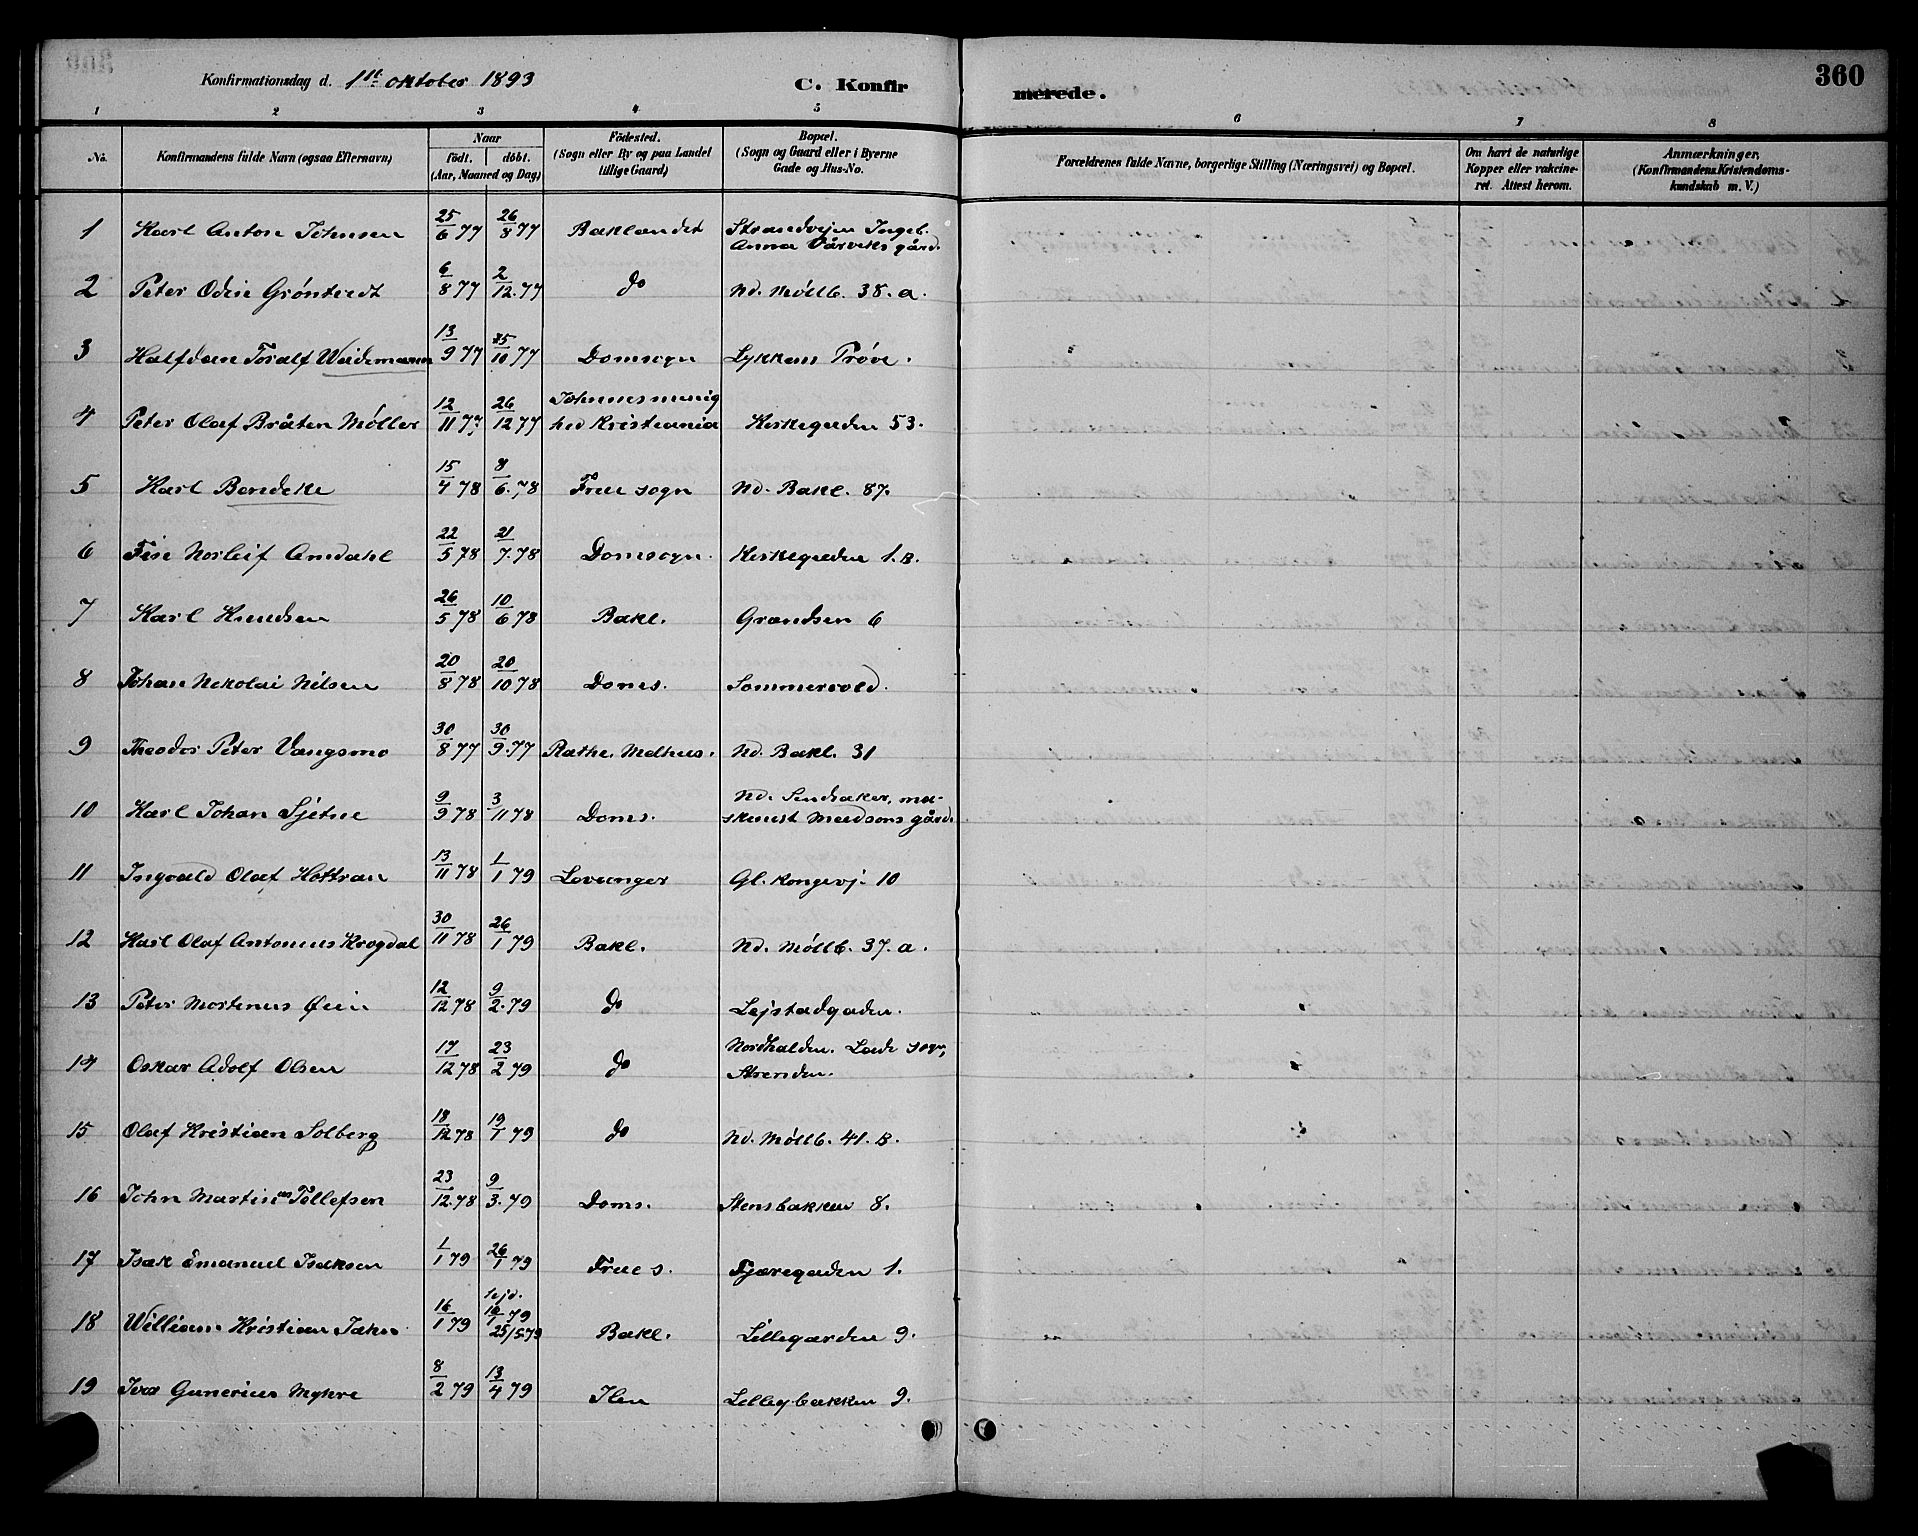 Konfirmationsdag d. 1ste oktober 1893
C. Konfirmerede.
360
1 2 3 4 5 6 7 8
No.
Konfirmandens fulde Navn (ogsaa Efternavn)
Naar
födt. döbt.
(Aar, Maaned og Dag)
Födested.
(Sogn eller By og paa Landet
tillige Gaard)
Bopæl.
(Sogn og Gaard eller i Byerne
Gade og Hus-No.
Forældrenes fulde Navne, borgerlige Stilling (Næringsvei) og Bopæl.
Om havt de naturlige
Kopper eller vakcine-
ret. Attest herom.
Anmærkninger,
(Konfirmandens Kristendoms-
kundskab m. V.)
1 Karl Anton Johnsen 25/6 77 26/8 77 Baklandet Strandvejen Ingeb.
Anna Vårviks gård.
2 Peter Odin Gröntvedt 6/8 77 2/12.77 do Nd. Möllb. 38.a.
3 Halfdan Toralf Weidemann 13/9 77 25/10 77 Domsogn Lykkens Pröve.
4 Peter Olaf Bråten Möller 12/11 77 26/12 77 ved Kristiania Kirkegaden 53.
5 Karl Benedeke 15/4 78 8/6.78 Frue sogn Nd. Bakl. 87.
6 Norleif Amdahl 22/5 78 21/7.78 Domsogn. Kirkegaden 1.B.
7 Karl Knudsen 26/5 78 10/6 78 Bakl. Grændsen 6
8 Johan Nikolai Nilsen 20/8 78 20/10 78 Doms. Sommervold.
9 Theodor Peter Vangsmo 30/8 77 30/9.77 Melhus. Nd. Bakl. 31
10 Karl Johan Sjetne 9/9 78 3/11 78 Doms. Nd. ma-
skinist Madsons gård.
11 Ingvald Olaf Hottran 13/11 78 1/1 79 Levanger Gl. kongevj. 10
12 Karl Olaf Antonius Krogdal 30/11 78 26/1 79 Bakl. Nd. Möllb. 37.a.
13 Peter Martinus Öien 12/12 78 9/2.79 do Lejstadgaden.
14 Oskar Adolf Olsen 17/12 78 23/2 79 do Nordhalden. Lade sogn,
Stranden.
15 Olaf Kristian Solberg 18/12 78 19/1 79 do Nd. Möllb. 41.B.
16 John Martin Tollefsen 23/12.78 9/3.79 Doms. Stensbakken 8.
17 Isak Emanuel Isaksen 1/1 79 26/1 79 Frue s. Fjæregaden 1.
18 William Kristian 16/1 79 25/5 79 Bakl. Lillegården 9.
19 Ivar Gunerius Myhre 8/2 79 13/4 79 Ilen Lillegbakken 9.